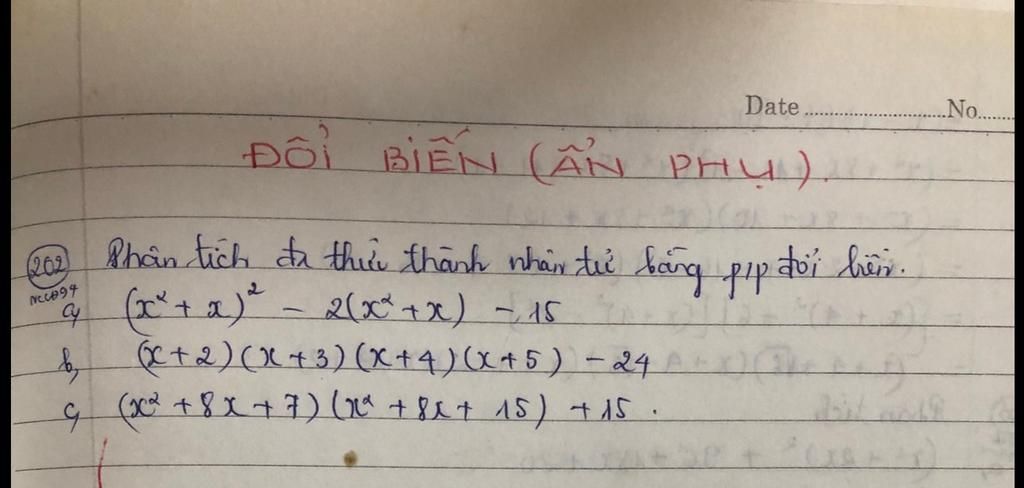 Date ........................ No.......
ĐỔI BIẾN (ẨN PHỤ).
202 Phân tích đa thức thành nhân tử bằng p/p đổi biến.
a, (x² + x)² - 2(x² + x) - 15
b, (x+2)(x+3)(x+4)(x+5) - 24
c, (x² + 8x + 7)(x² + 8x + 15) + 15.